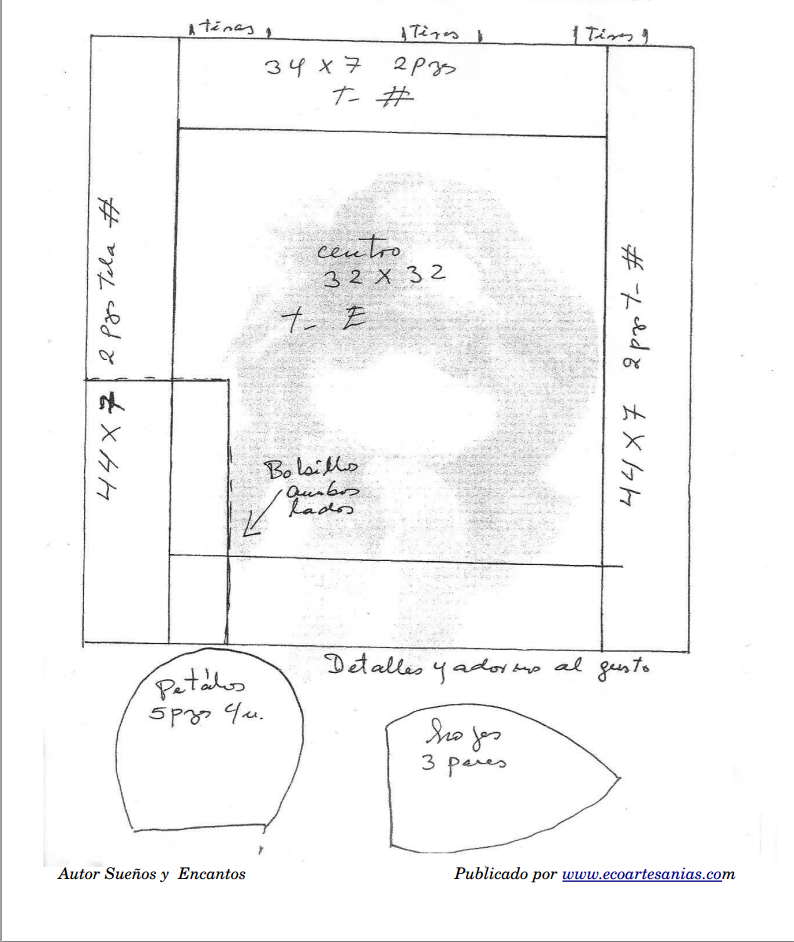 Tiras Tiras Tiras
34 X 7 2 Pzs
T- #
2 Pzs Tela #
44 X 7
centro
32 X 32
T- E
# T- 2 Pzs
44 X 7
Bolsillo
ambos
lados
Detalles y adorno al gusto
Petálos
5 pzs 4 u.
hojas
3 pares
Autor Sueños y Encantos
Publicado por www.ecoartesanias.com